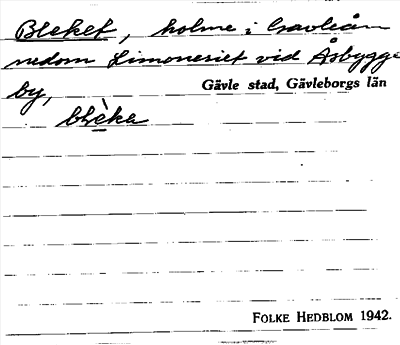 Bleket, holme i Gavleån
nedom Limoneriet vid Åsbygge
by, Gävle stad, Gävleborgs län
blèka
FOLKE HEDBLOM 1942.